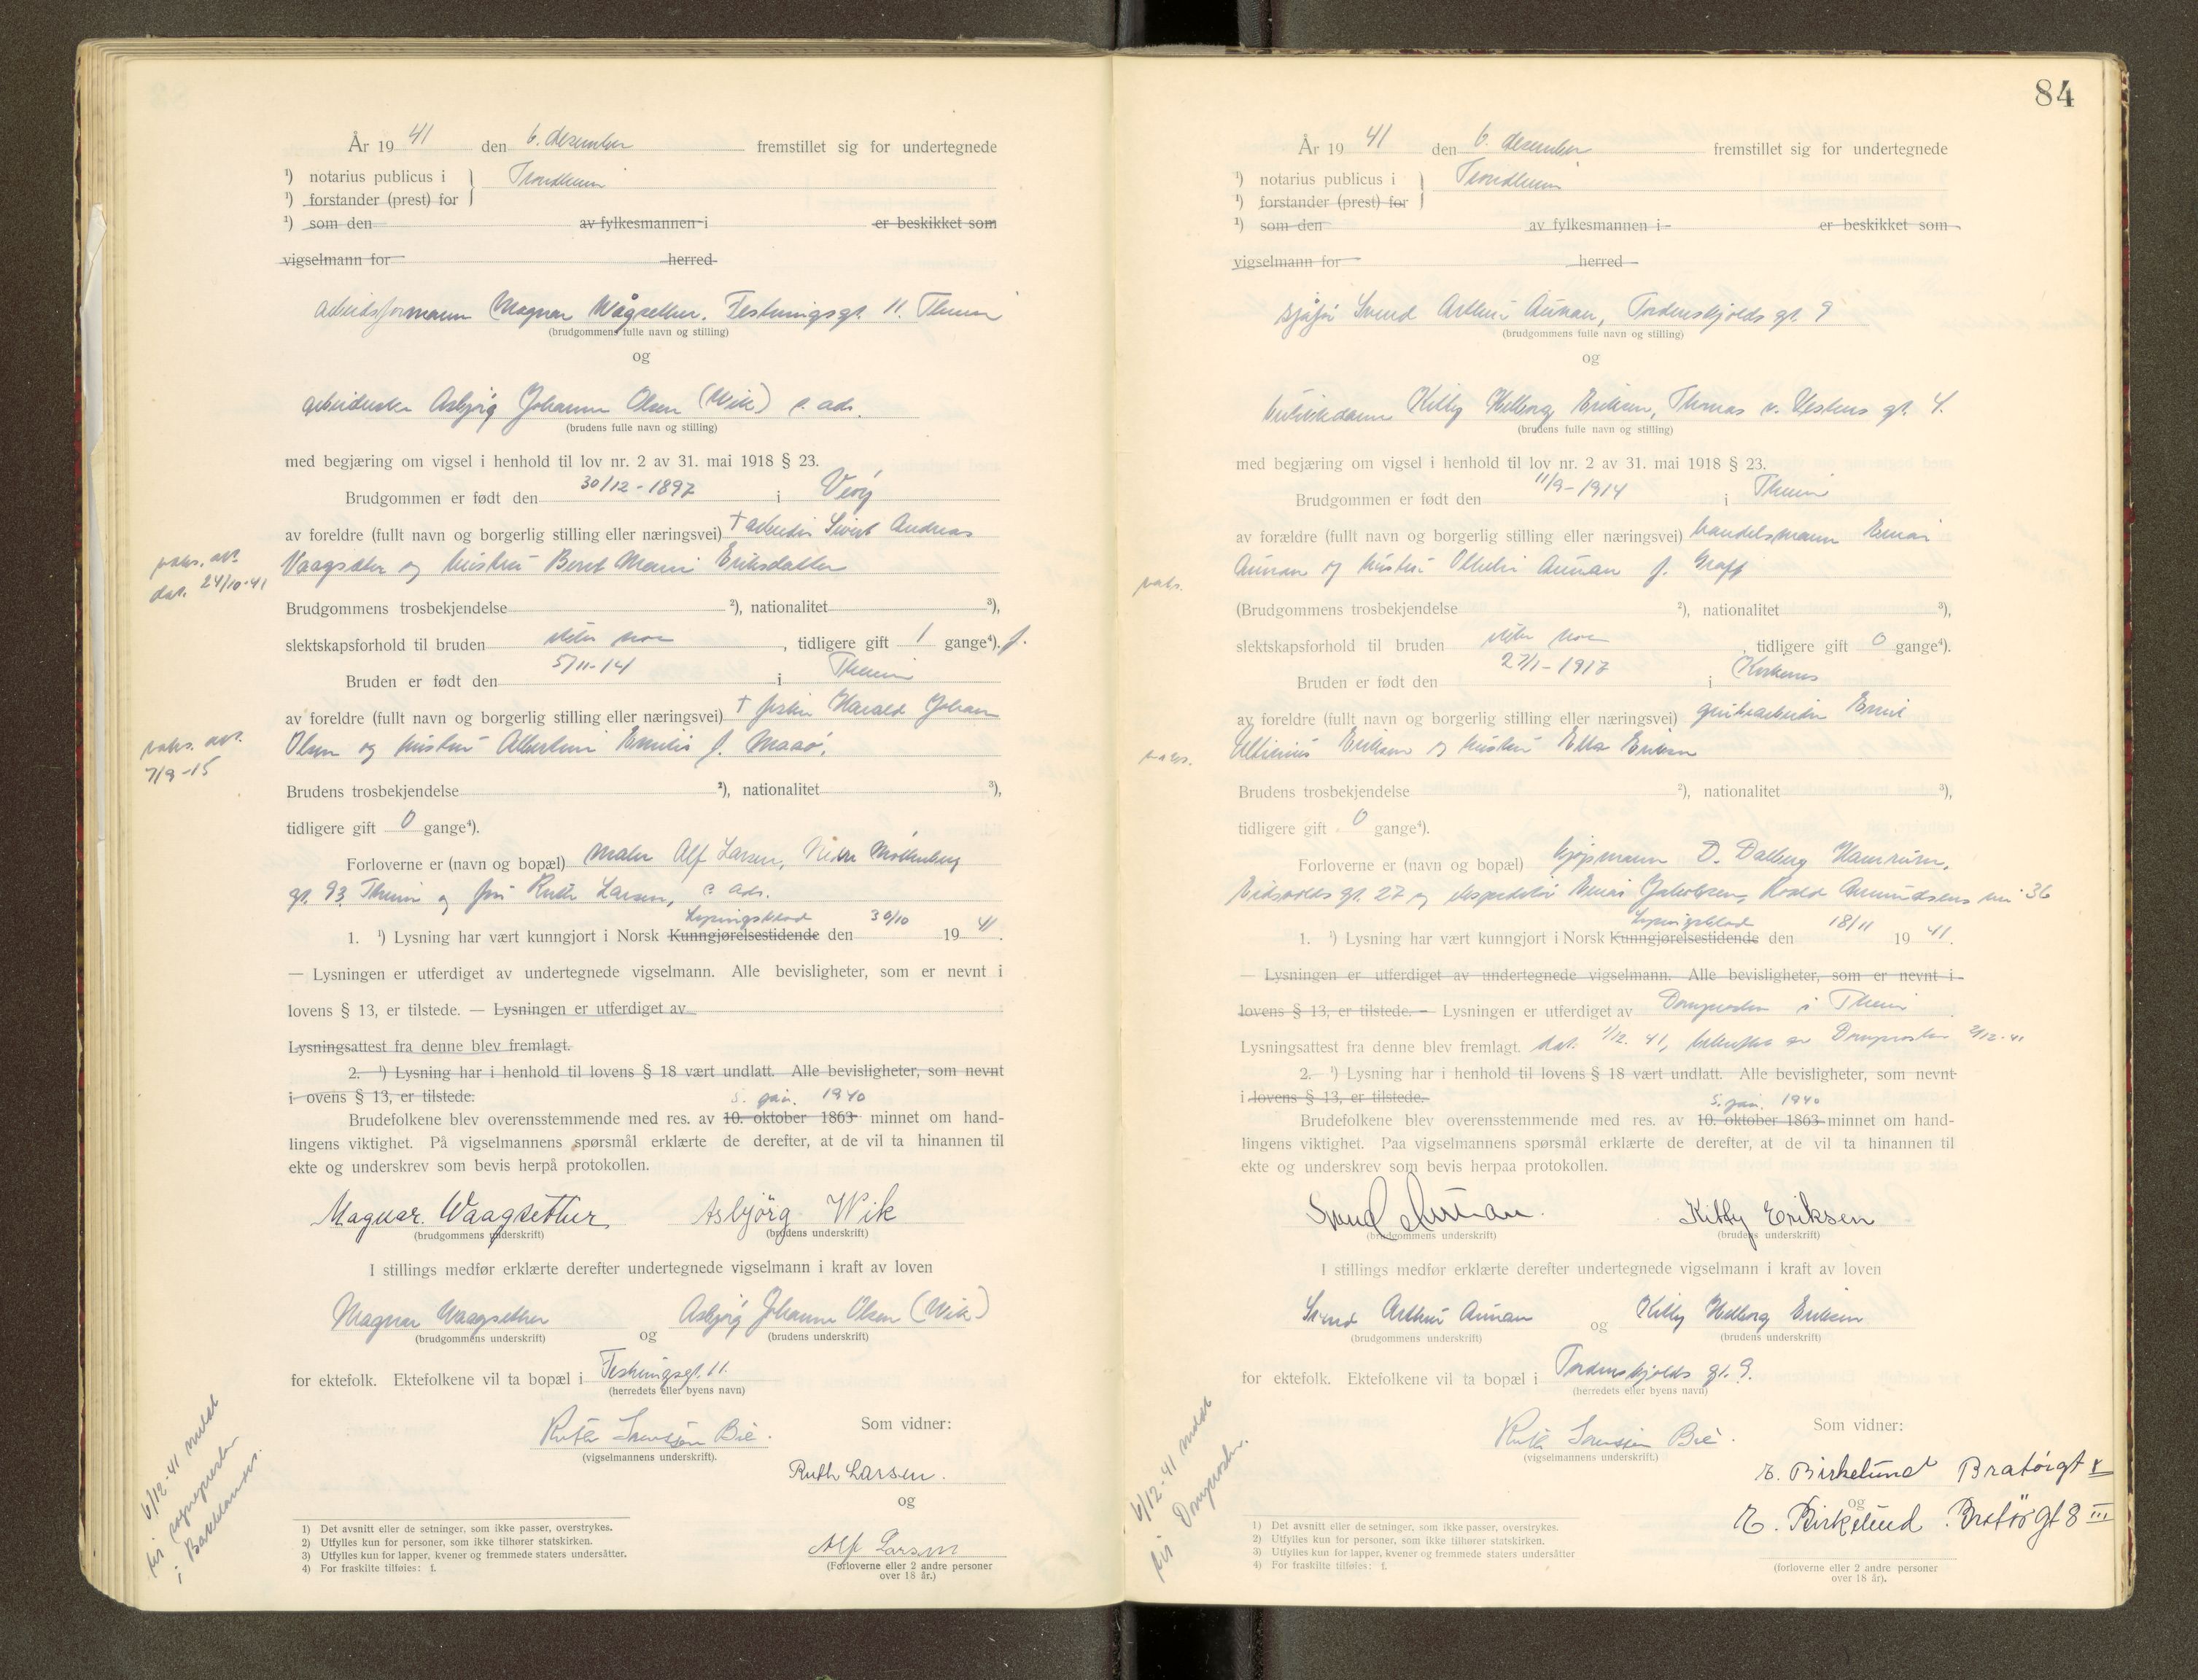 År 19 41 den 6. desember fremstillet sig for undertegnede
¹) notarius publicus i Trondheim
¹) forstander (prest) for
¹) som den av fylkesmannen i er beskikket som
vigselmann for herred
arbeidsformann Magnar Wågsether. Festningsgt. 11. Theim
(brudgommens fulle navn og stilling)
og
arbeiderske Asbjørg Johanne Olsen (Wik) s. ads.
(brudens fulle navn og stilling)
med begjæring om vigsel i henhold til lov nr. 2 av 31. mai 1918 § 23.
Brudgommen er født den 30/12-1897 i
av foreldre (fullt navn og borgerlig stilling eller næringsvei) † arbeider Sivert Andreas
Vaagsæther og hustru Beret Marie Eriksdatter
dat. 24/10-41
Brudgommens trosbekjendelse ²), nationalitet ³),
slektskapsforhold til bruden , tidligere gift 1 gange⁴). f.
Bruden er født den 5/11-14 i Theim
av foreldre (fullt navn og borgerlig stilling eller næringsvei) † fisker Harald Johan
Olsen og hustru Albertine Emilie f. Maaø.
7/9-15
Brudens trosbekjendelse ²), nationalitet ³),
tidligere gift 0 gange⁴).
Forloverne er (navn og bopæl) maler Alf Larsen, Nedre Møllenberg
gt. 93 Theim og fru Ruth Larsen, s. ads.
Lysingsblad
1. ¹) Lysning har vært kunngjort i Norsk Kunngjørelsestidende den 30/10 19 41
— Lysningen er utferdiget av undertegnede vigselmann. Alle bevisligheter, som er nevnt i
lovens § 13, er tilstede. — Lysningen er utferdiget av
Lysningsattest fra denne blev fremlagt.
2. ¹) Lysning har i henhold til lovens § 18 vært undlatt. Alle bevisligheter, som nevnt
i ovens § 13, er tilstede.
5. jan. 1940
Brudefolkene blev overensstemmende med res. av 10. oktober 1863 minnet om hand-
lingens viktighet. På vigselmannens spørsmål erklærte de derefter, at de vil ta hinannen til
ekte og underskrev som bevis herpå protokollen.
Magnar Waagsether Asbjörg Wik
(brudgommens underskrift) (brudens underskrift)
I stillings medfør erklærte derefter undertegnede vigselmann i kraft av loven
Magnar Waagsether og Asbjørg Johanne Olsen (Wik)
(brudgommens underskrift) (brudens underskrift)
for ektefolk. Ektefolkene vil ta bopæl i Festningsgt. 11.
(herredets eller byens navn)
Som vidner:
(vigselmannens underskrift).
Ruth Larsen.
og
Alf Larsen
(Forloverne eller 2 andre personer
over 18 år.)
6/12-41 meldt
til sognepresten
i Bakklandet.
1) Det avsnitt eller de setninger, som ikke passer, overstrykes.
2) Utfylles kun for personer, som ikke tilhører statskirken.
3) Utfylles kun for lapper, kvener og fremmede staters undersåtter.
4) For fraskilte tilføies: f.
84
År 19 41 den 6. desember fremstillet sig før undertegnede
¹) notarius publicus i Trondheim
¹) forstander (prest) for
¹) som den av fylkesmannen i er beskikket som
vigselmann for herred
sjåfør Svend Arthur Aunan, Tordenskjolds gt. 9
(brudgommens fulle navn og stilling)
og
butikkdame Kitty Helborg Eriksen, Thomas v. Westens gt. 4.
(brudens fulle navn og stilling)
med begjæring om vigsel i henhold til lov nr. 2 av 31. mai 1918 § 23.
Brudgommen er født den 11/9-1914 i Theim
av forældre (fullt navn og borgerlig stilling eller næringsvei) handelsmann Einar
Aunan og hustru Othelie Aunan f. Graff
(Brudgommens trosbekjendelse ²), nationalitet ³),
slektskapsforhold til bruden , tidligere gift 0 gange⁴).
Bruden er født den 27/1-1917 i Kirkenes
av foreldre (fullt navn og borgerlig stilling eller næringsvei) grubearbeider Emil
Eriksen og hustru Ella Eriksen
Brudens trosbekjendelse ²), nationalitet ³),
tidligere gift 0 gange⁴).
Forloverne er (navn og bopæl) kjøpmann O. Dalberg
Eidsvolds gt. 27 og ekspeditør Einar Jakobsen, Roald Amundsens vei 36
Lysingsblad
1. ¹) Lysning har vært kunngjort i Norsk Kunngjørelsestidende den 18/11 19 41.
— Lysningen er utferdiget av undertegnede vigselmann. Alle bevisligheter, som er nevnt i
lovens § 13, er tilstede. — Lysningen er utferdiget av Domprosten i Theim
Lysningsattest fra denne blev fremlagt. dat. 1/12. 41, bekreftet av Domprosten 2/12-41
2. ¹) Lysning har i henhold til lovens § 18 vært undlatt. Alle bevisligheter, som nevnt
i lovens § 13, er tilstede.
5. jan. 1940
Brudefolkene blev overensstemmende med res. av 10. oktober 1863 minnet om hand-
lingens viktighet. Paa vigselmannens spørsmål erklærte de derefter, at de vil ta hinannen til
ekte og underskrev som bevis herpaa protokollen.
Svend Aunan. Kitty Eriksen
(brudgommens underskrift) (brudens underskrift)
I stillings medfør erklærte derefter undertegnede vigselmann i kraft av loven
Svend Arthur Aunan og Kitty Helborg Eriksen
(brudgommens underskrift) (brudens underskrift)
for ektefolk. Ektefolkene vil ta bopæl i Tordenskjolds gt. 9.
(herredets eller byens navn)
Som vidner:
(vigselmannens underskrift.)
E. Birkelund Bratörgt
og
E. Birkelund Bratörgt 8 III
(forloverne eller 2 andre personer
over 18 år).
6/12-41 meldt
til Domprosten.
1) Det avsnitt eller de setninger, som ikke passer, overstrykes.
2) Utfylles kun for personer, som ikke tilhører statskirken.
3) Utfylles kun for lapper, kvener og fremmede staters undersåtter
4) For fraskilte tilføies: f.